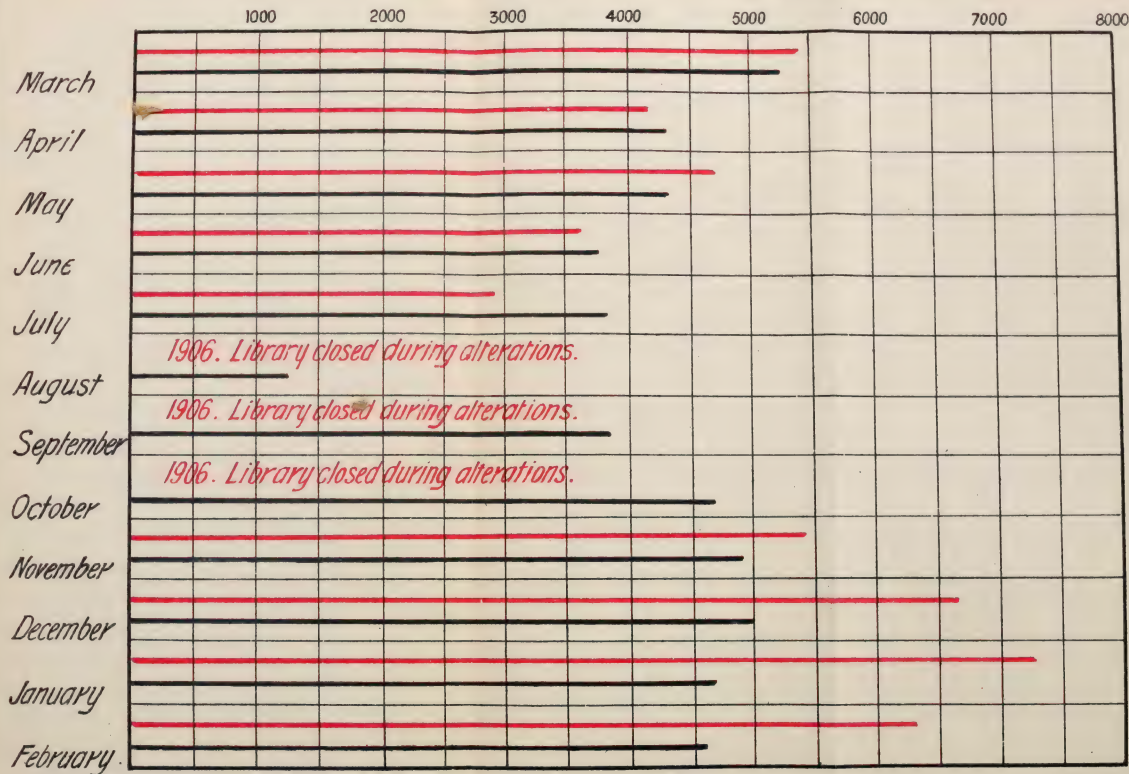 1000 2000 3000 4000 5000 6000 7000 8000
March
April
May
June
July
1906. Library closed during alterations.
August
1906. Library closed during alterations.
September
1906. Library closed during alterations.
October
November
December
January
February.